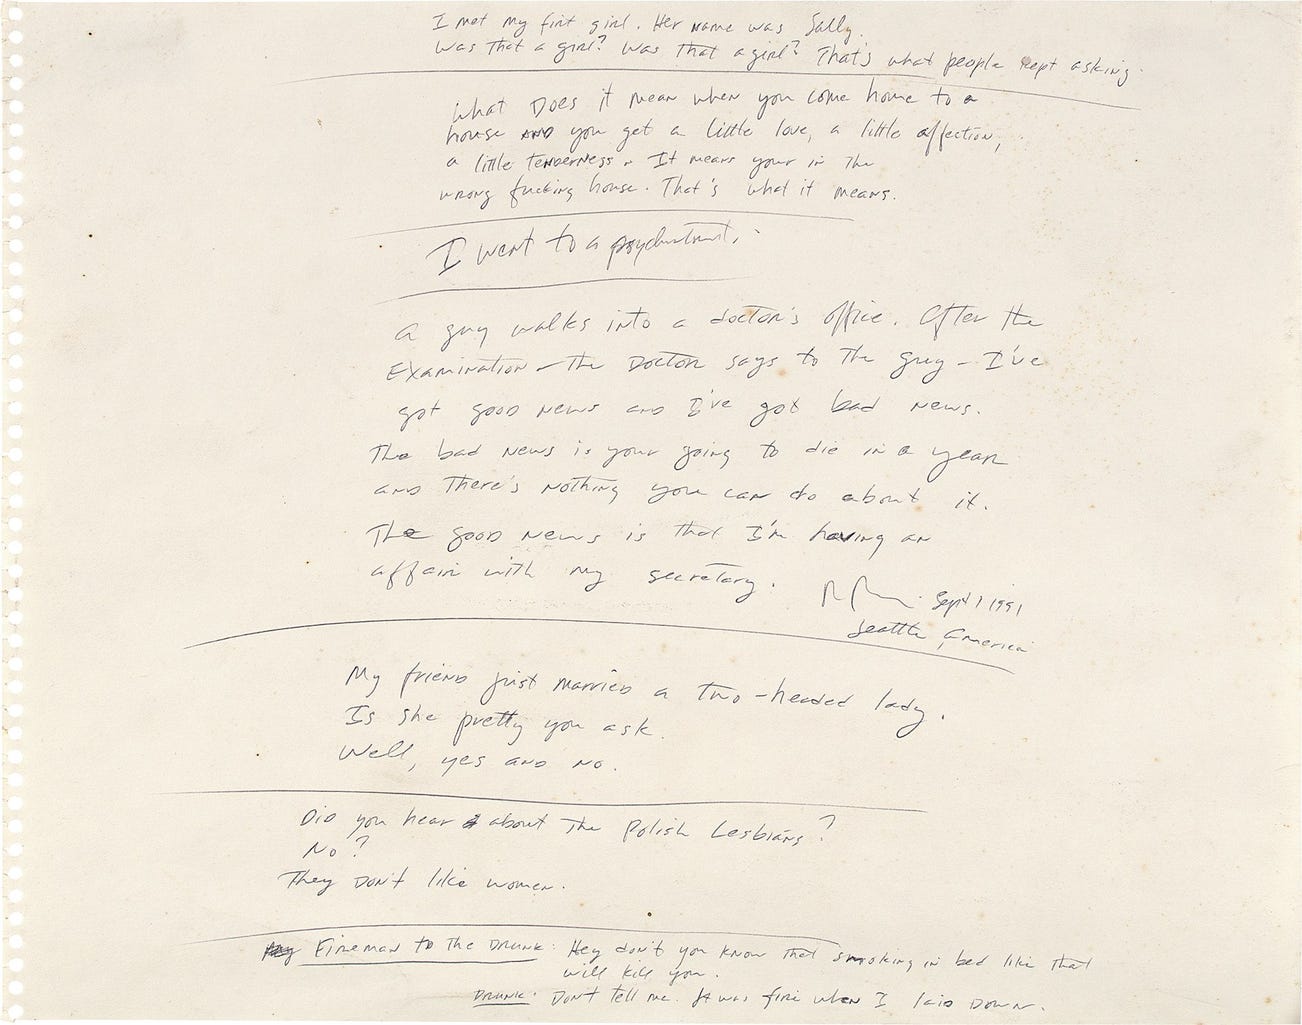 I met my first girl. Her name was Sally.
Was that a girl? Was that a girl? That's what people kept asking.
What Does it mean when you come home to a
house AND you get a little love, a little affection,
a little tenderness. It means your in the
wrong fucking house. That's what it means.
I went to a psychiatrist.
A guy walks into a doctor's office. After the
Examination – the Doctor says to the guy – I've
got good news and I've got bad news.
The bad news is your going to die in a year
and there's nothing you can do about it.
The good news is that I'm having an
affair with my secretary.
Sept 1 1991
Seattle, America
My friend just married a two-headed lady.
Is she pretty you ask.
Well, yes and no.
Did you hear about the Polish Lesbians?
No?
They Don't like women.
Fireman to the Drunk: Hey don't you know that smoking in bed like that
will kill you.
Drunk: Don't tell me. It was fire when I laid down.